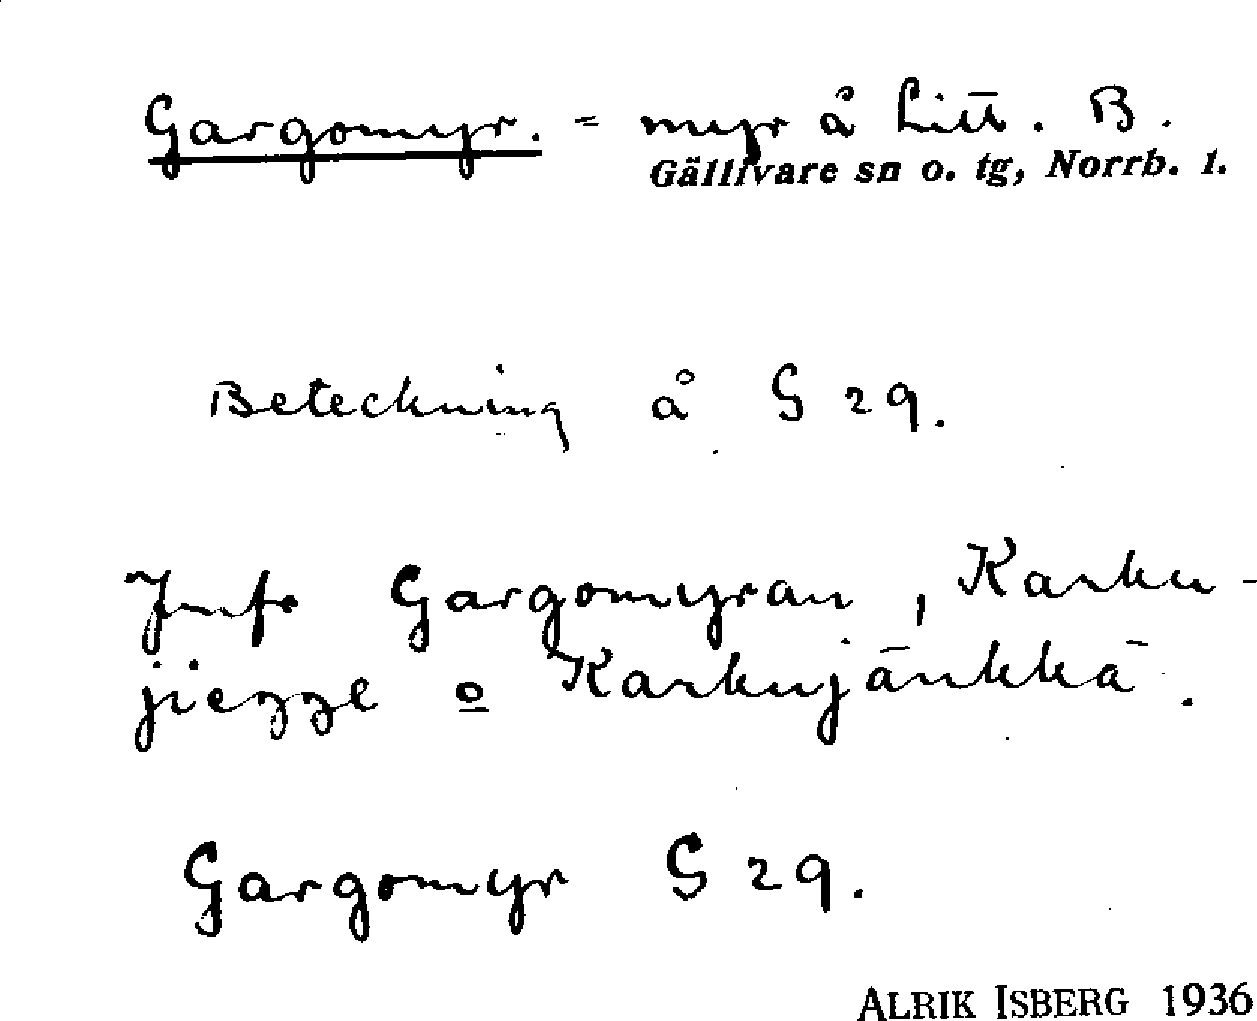 Gargomyr. = myr å Litt. B.
Gällivare sn o. tg, Norrb. l.
Beteckning å S 29.
Jmfr Gargomyran, Karku-
jiegge o Karkujänkkä.
Gargomyr S 29.
ALRIK ISBERG 1936